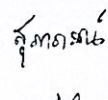 สุภาภรณ์